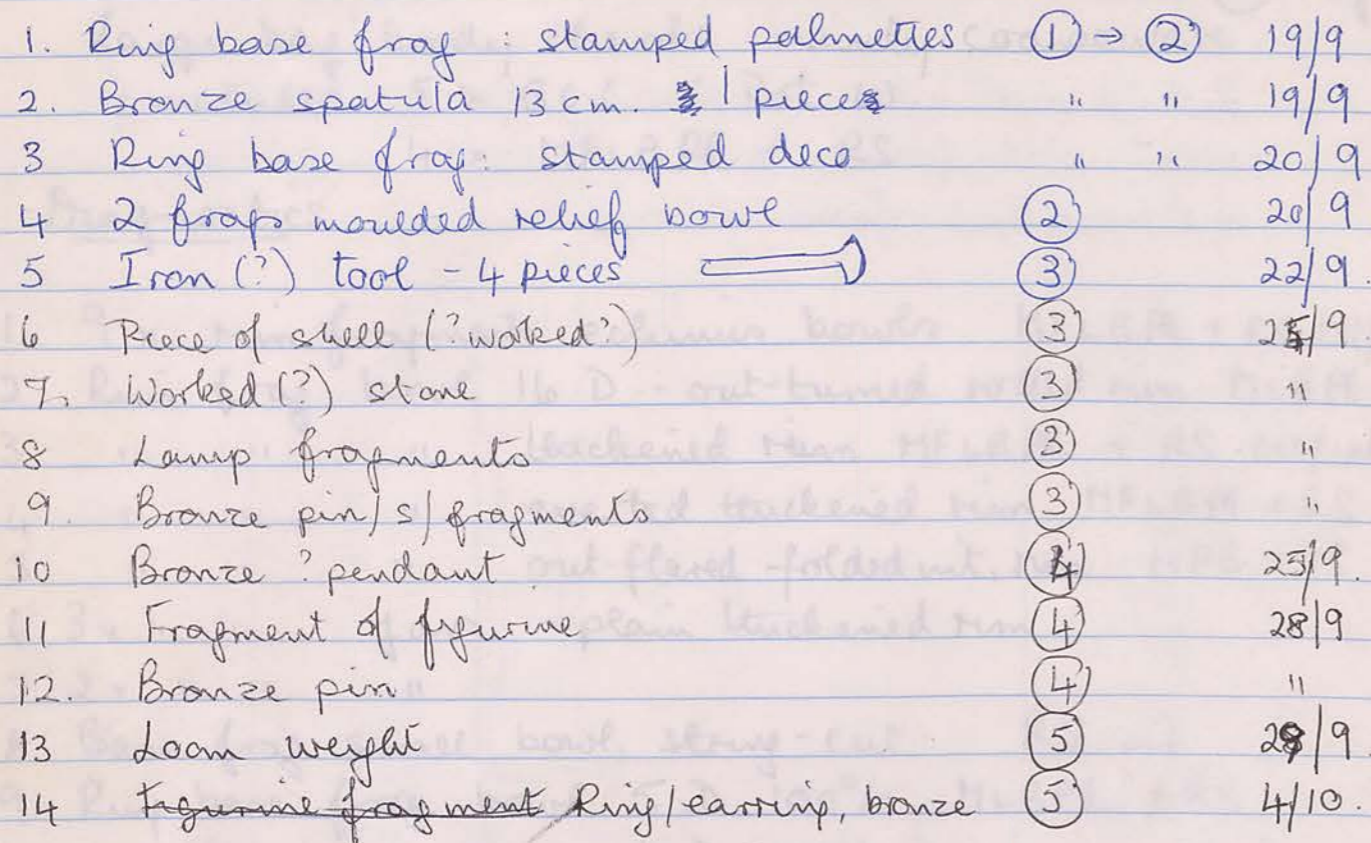 1. Ring base frag : stamped palmettes ① → ② 19/9
2. Bronze spatula 13 cm. 1 piece " " 19/9
3 Ring base frag: stamped deco " " 20/9
4 2 frags moulded relief bowl ② 20/9
5 Iron (?) tool - 4 pieces ③ 22/9.
6 Piece of shell (?worked?) ③ /9.
7. Worked (?) stone ③ "
8 Lamp fragments ③ "
9. Bronze pin/s/fragments ③ "
10 Bronze ? pendant ④ 25/9.
11 Fragment of figurine ④ 28/9
12. Bronze pin ④ "
13 Loom weight ⑤ /9.
14 Figurine fragment Ring/earring, bronze ⑤ 4/10.